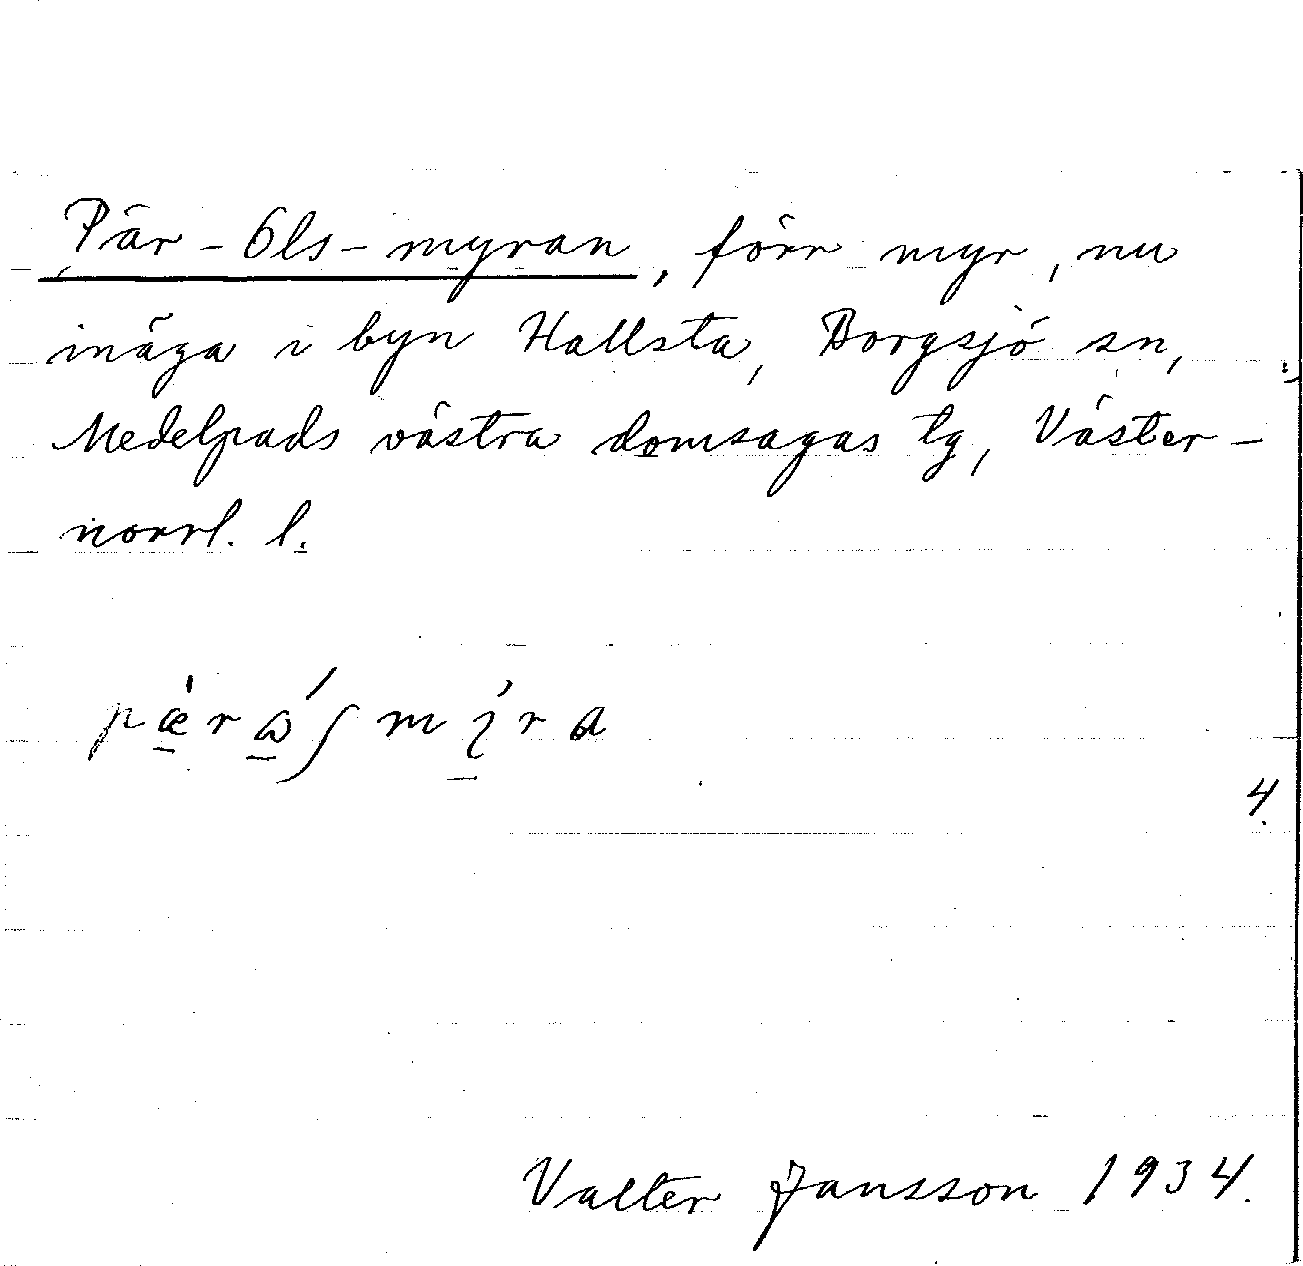 Pär-Ols-myran, förr myr, nu
inäga i byn Hallsta, Borgsjö sn,
Medelpads västra domsagas tg, Väster-
norrl. l.
4.
Valter Jansson 1934.